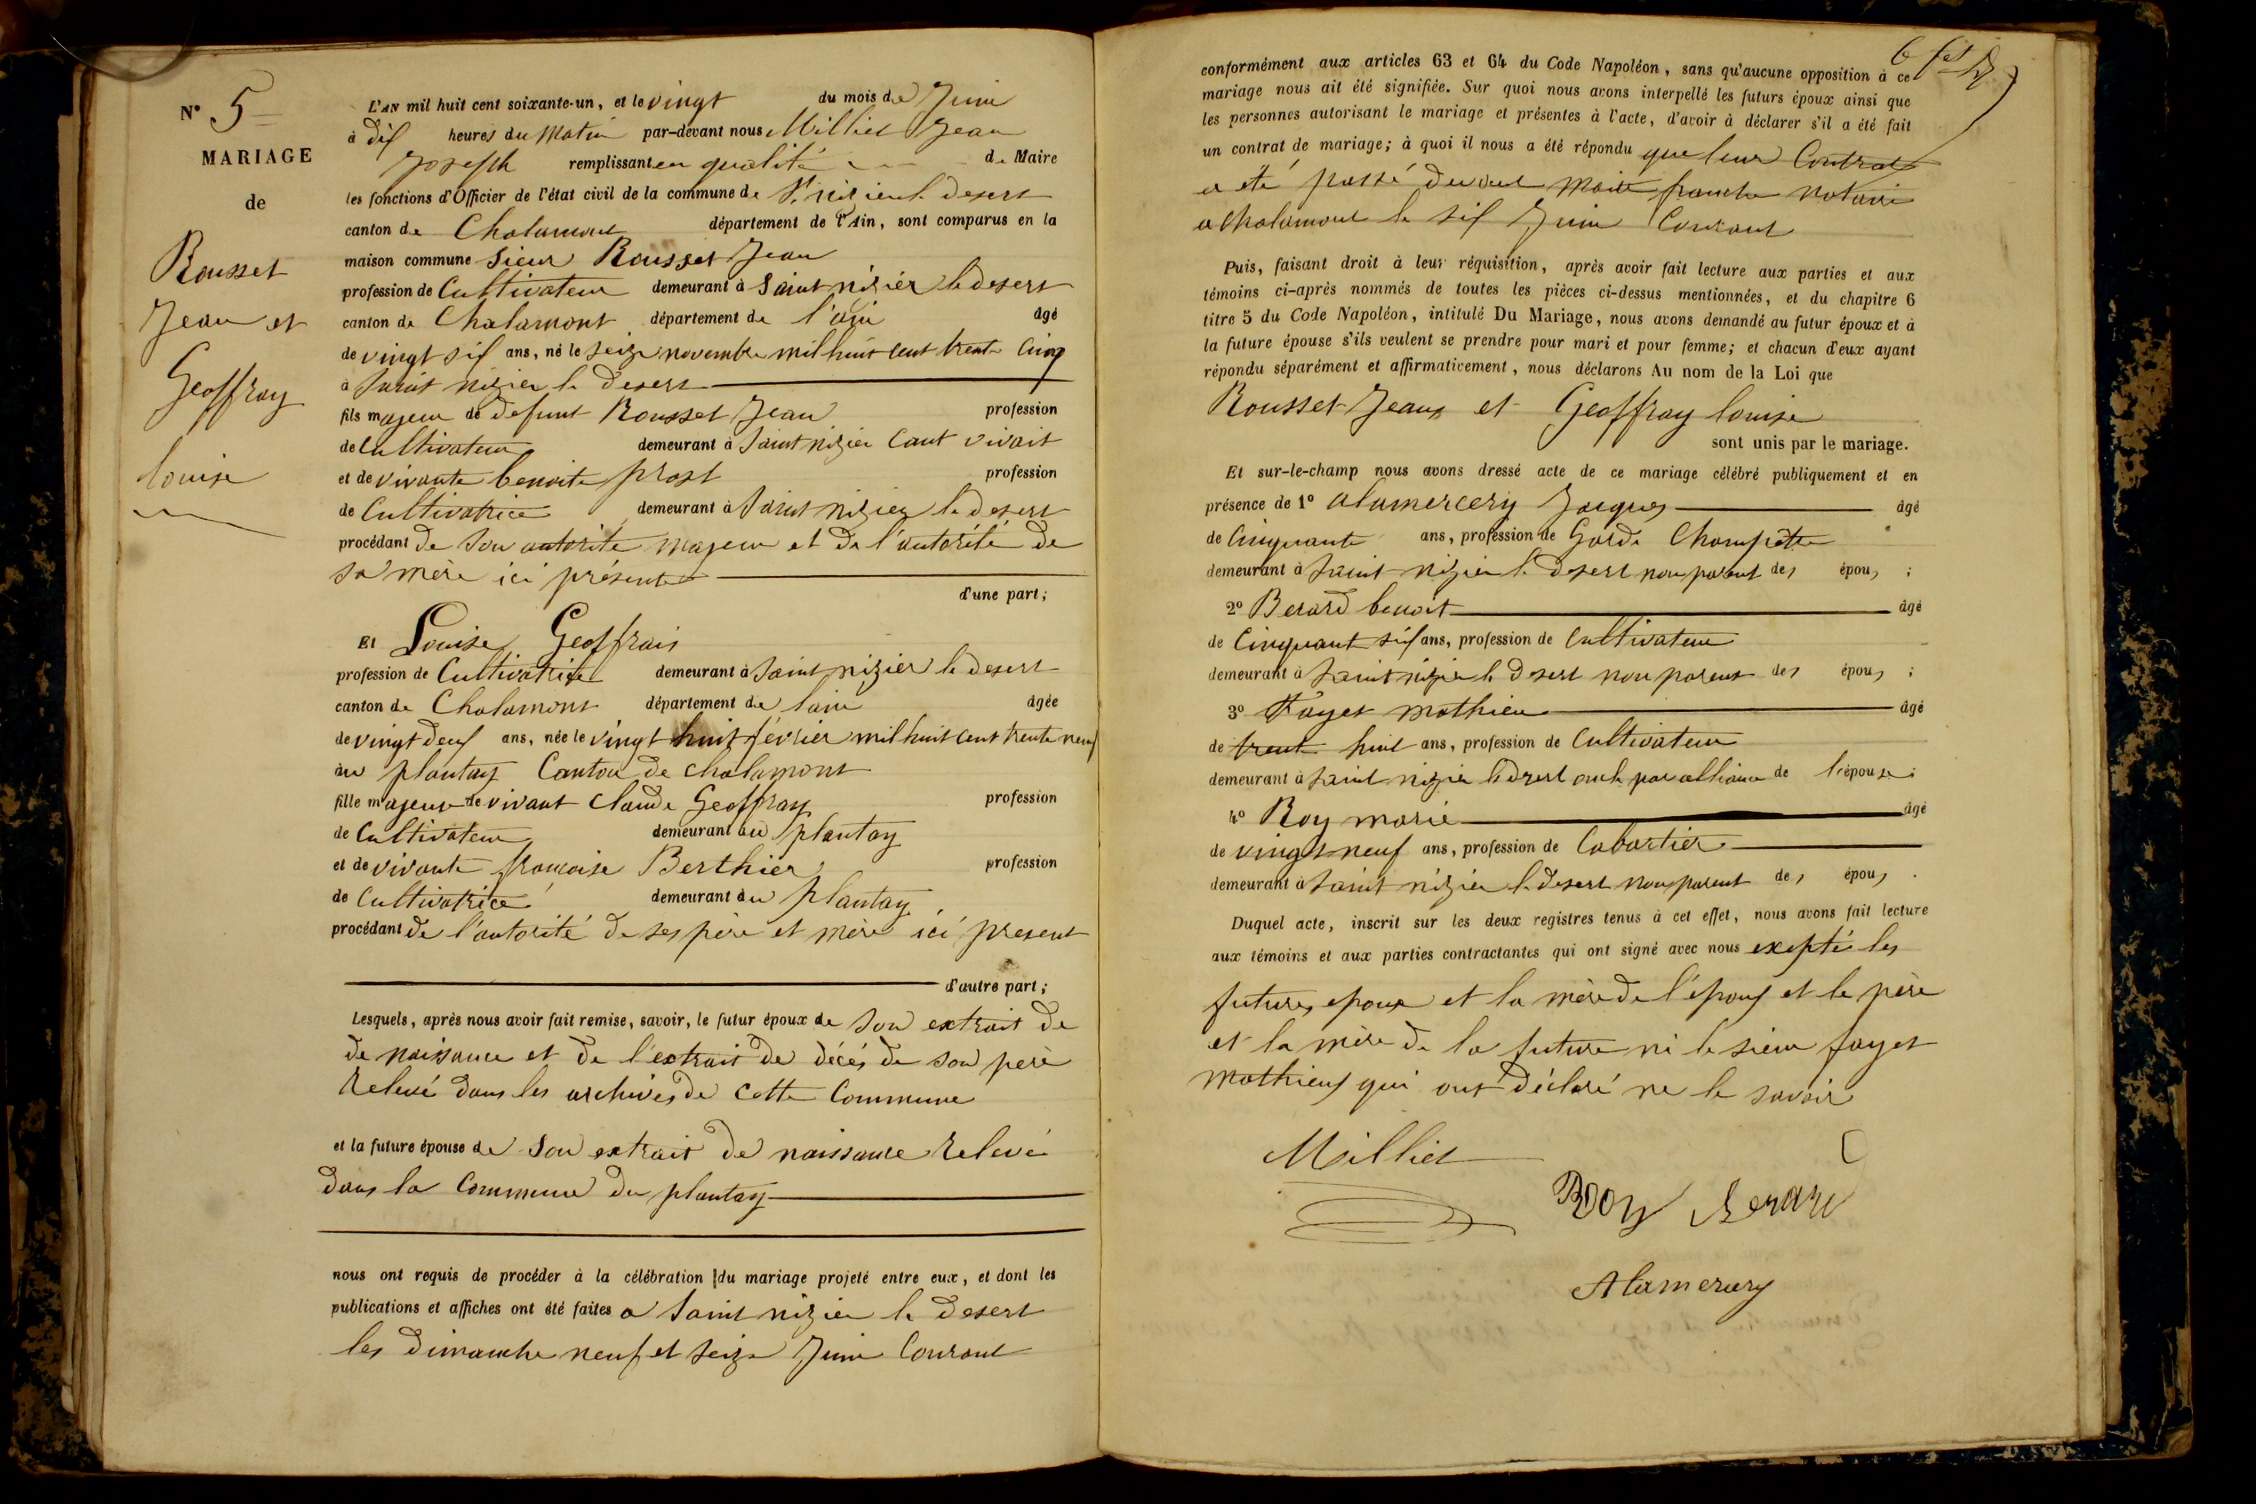 N° 5
MARIAGE
de
Rousset
Jean et
Geoffray
louise
L'AN mil huit cent soixante-un, et le vingt du mois de Juin
à dix heures du matin par-devant nous Milliet Jean
Joseph remplissant en qualité de Maire
les fonctions d'Officier de l'état civil de la commune de St nizier le desert
canton de Chalamont département de l'Ain, sont comparus en la
maison commune sieur Rousset Jean
profession de Cultivateur demeurant à Saint nizier le desert
canton de Chalamont département de l'ain âgé
de vingt six ans, né le seize novembre mil huit cent trente cinq
à saint nizier le desert
fils majeur de defunt Rousset Jean profession
de cultivateur demeurant à saint nizier cant vivait
et de vivante benoite prost profession
de Cultivatrice demeurant à saint nizier le desert
procédant de son autorité majeur et de l'autorité de
sa mère ici présente
d'une part;
Et Louise Geoffrais
profession de Cultivatrice demeurant à saint nizier le desert
canton de Chalamont département de lain âgée
de vingt deux ans, née le vingt huit février mil huit cent trente neuf
au plantay Canton de chalamont
fille majeure de vivant claude Geoffray profession
de Cultivateur demeurant au plantay
et de vivante francoise Berthier profession
de cultivatrice demeurant au plantay
procédant de l'autorité de ses père et mère ici present
d'autre part;
Lesquels, après nous avoir fait remise, savoir, le futur époux de son extrait de
de naissance et de l'extrait de décés de son père
Relevé dans les archives de cette Commune
et la future épouse de son extrait de naissance Relevé
dans la Commune du plantay
nous ont requis de procéder à la célébration du mariage projeté entre eux, et dont les
publications et affiches ont été faites a saint nizier le desert
les dimanche neuf et seize Juin Courant
conformément aux articles 63 et 64 du Code Napoléon, sans qu'aucune opposition à ce
mariage nous ait été signifiée. Sur quoi nous avons interpellé les futurs époux ainsi que
les personnes autorisant le mariage et présentes à l'acte, d'avoir à déclarer s'il a été fait
un contrat de mariage; à quoi il nous a été répondu que leur Contrat
a été passé devant maitre franche notaire
a chalamont le six Juin Courant
Puis, faisant droit à leur réquisition, après avoir fait lecture aux parties et aux
témoins ci-après nommés de toutes les pièces ci-dessus mentionnées, et du chapitre 6
titre 5 du Code Napoléon, intitulé Du Mariage, nous avons demandé au futur époux et à
la future épouse s'ils veulent se prendre pour mari et pour femme; et chacun d'eux ayant
répondu séparément et affirmativement, nous déclarons Au nom de la Loi que
Rousset Jean et Geoffray louise
sont unis par le mariage.
Et sur-le-champ nous avons dressé acte de ce mariage célébré publiquement et en
présence de 1° alamercery Jacques âgé
de Cinquante ans, profession de Garde Champêtre
demeurant à saint nizier le desert non parent des époux ;
2° Berard benoit âgé
de Cinquant six ans, profession de Cultivateur
demeurant à saint nizier le desert non parent des époux ;
3° Fayet mathieu âgé
de trent huit ans, profession de Cultivateur
demeurant à saint nizier le desert oncle par alliance de l'épouse ;
4° Roy marie âgé
de vingt neuf ans, profession de Cabartier
demeurant à saint nizier le desert non parent des époux .
Duquel acte, inscrit sur les deux registres tenus à cet effet, nous avons fait lecture
aux témoins et aux parties contractantes qui ont signé avec nous exepté les
futures epoux et la mère de l'époux et le père
et la mère de la future ni le sieur fayet
mathieux qui ont déclaré ne le savoir
Milliet
Rooy Berard
Alamercery